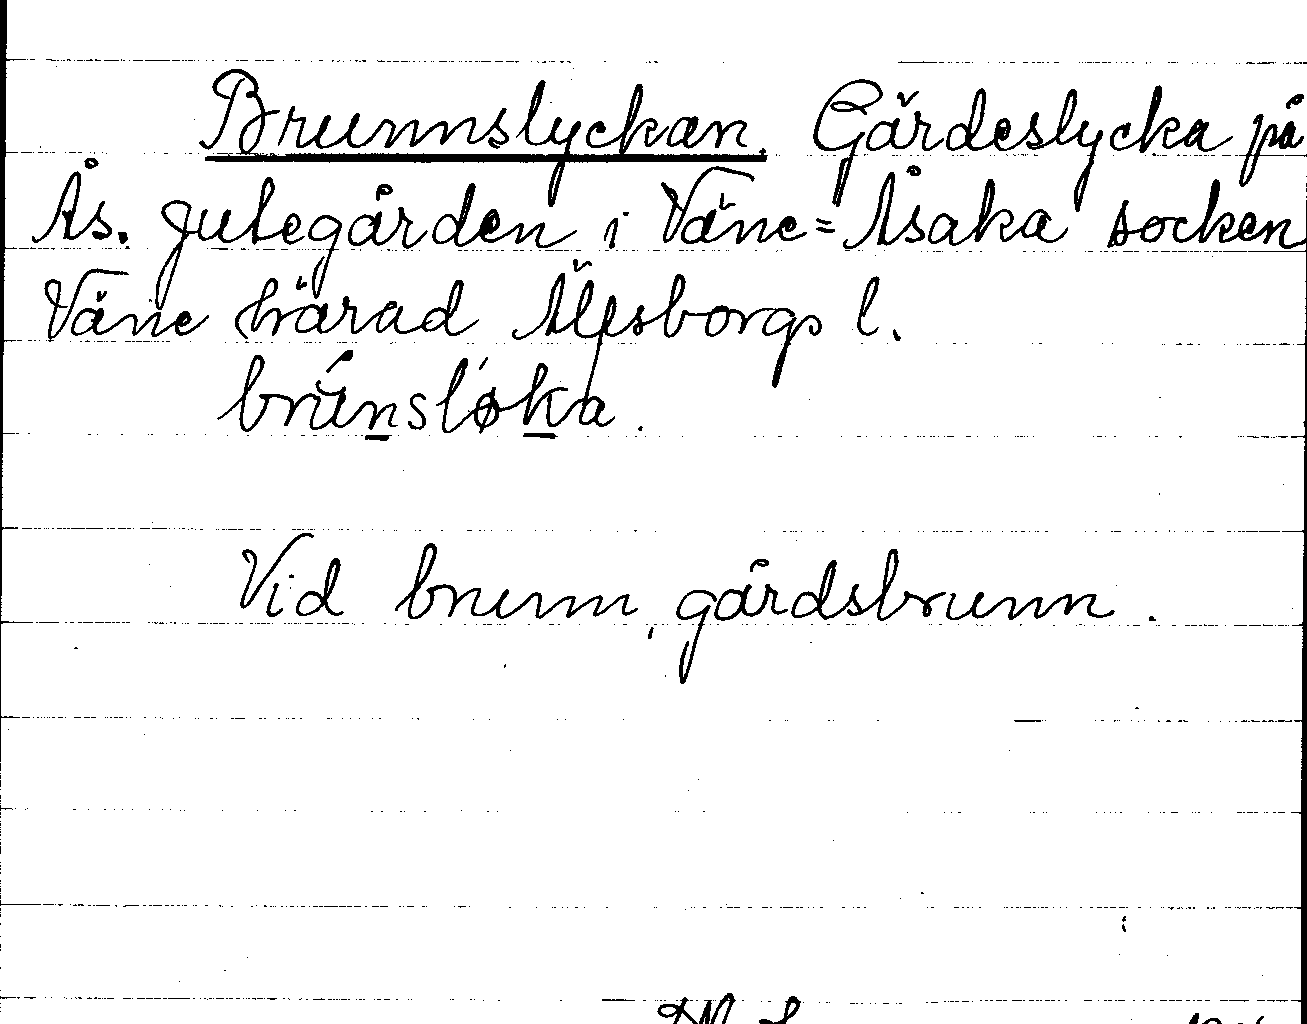 Brunnslyckan. Gärdeslycka på
Ås. Jutegården i Väne=Åsaka socken
Väne härad Älfsborgs l.
brúnsløka.
Vid brunn, gårdsbrunn.